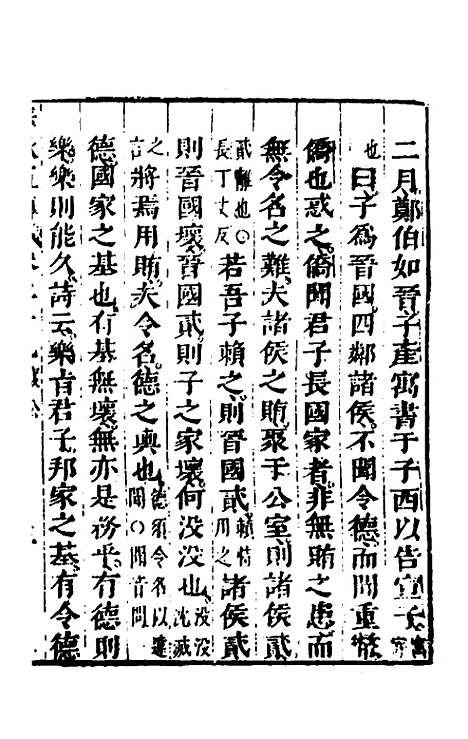 二月鄭伯如晉子產寓書于子西以告宣子寓寄
也曰子爲晉國四鄰諸侯不聞令德而聞重幣
僑也惑之僑聞君子長國家者非無賄之患而
無令名之難夫諸侯之賄聚于公室則諸侯貳
貳離也○長丁丈反若吾子賴之則晉國貳賴恃用之諸侯貳
則晉國壞晉國貳則子之家壞何没没也没没沈滅
之言將焉用賄夫令名德之輿也德須令名以遠聞○聞音問
德國家之基也有基無壞無亦是務乎有德則
樂樂則能久詩云樂旨君子邦家之基有令德